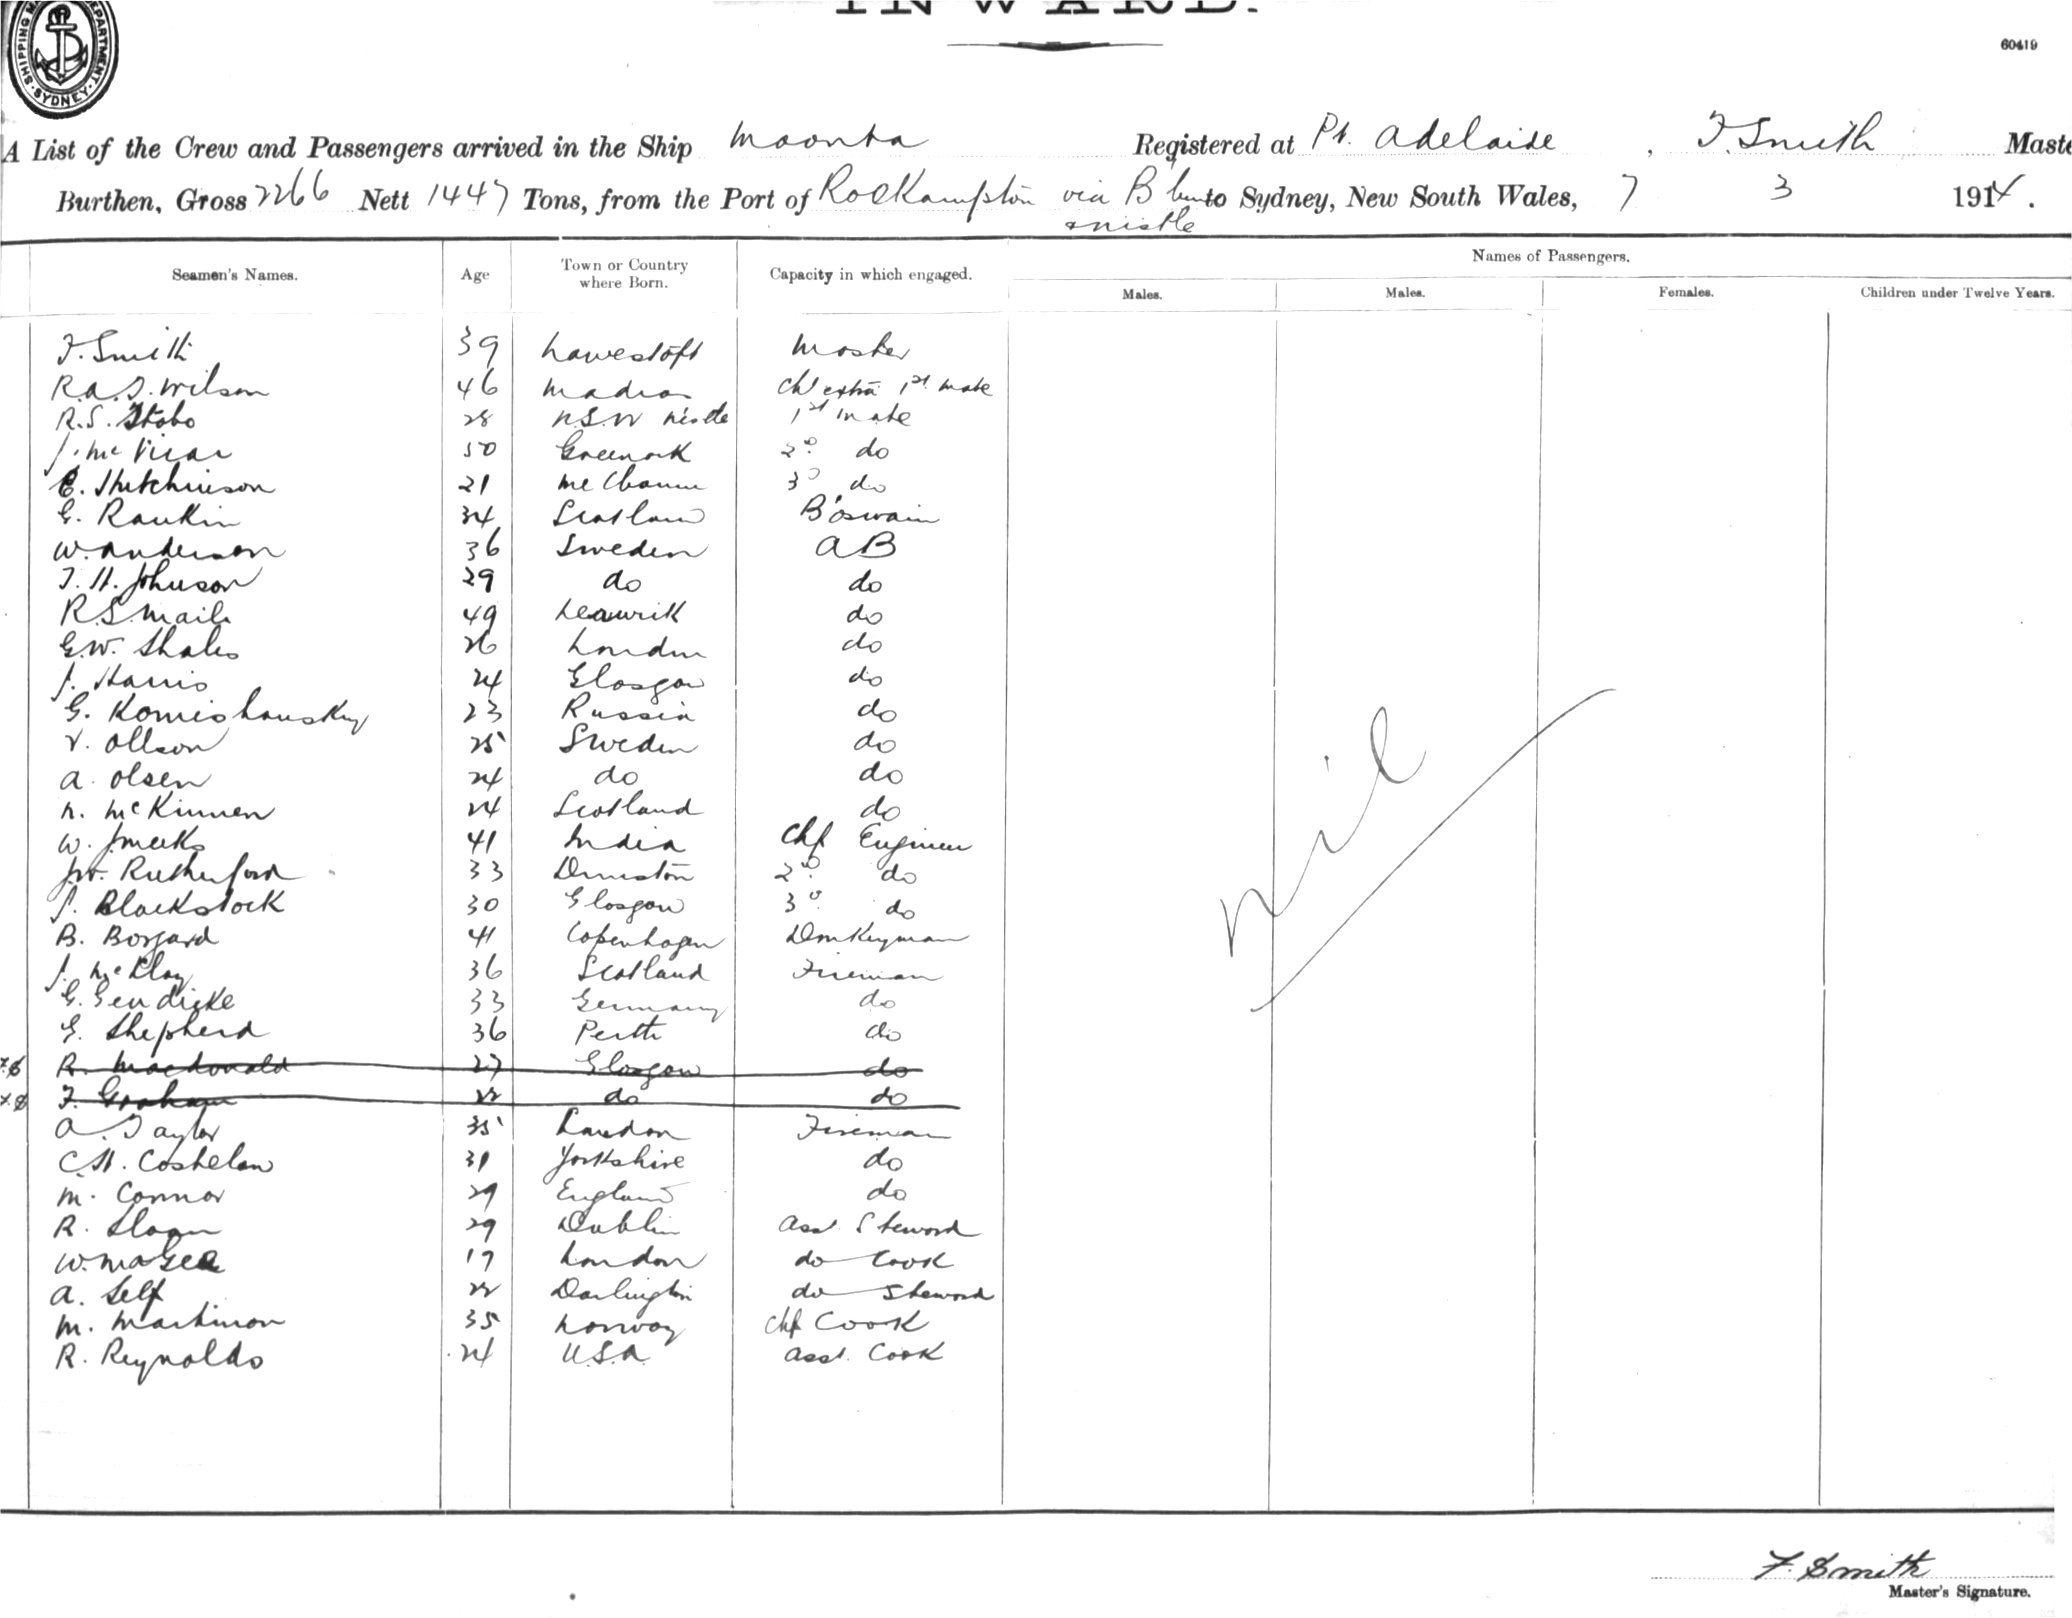 INWARD.
SHIPPING DEPARTMENT. SYDNEY.
60419
A List of the Crew and Passengers arrived in the Ship Moonta Registered at Pt. Adelaide , F. Smith Maste
Burthen, Gross 2266 Nett 1447 Tons, from the Port of Rockampton via B'bne to Sydney, New South Wales, 7 3 1914.
& N'stle
Names of Passengers.
Seamen's Names. Age Town or Country where Born. Capacity in which engaged. Males. Males. Females. Children under Twelve Years.
F. Smith 39 Lowestoft Master
R.A.J. Wilson 46 Madras Chf extra 1st mate
R.S. Stobo 28 N.S.W N'stle 1st mate
J. McVicar 50 Greenock 2d do
E. Hutchinson 21 Melbourne 3d do
G. Rankin 34 Scotland B'oswain
W. Anderson 36 Sweden AB
J. H. Johnson 29 do do
R.S. 49 Lerwick do
G.W. Shales 26 London do
J. Harris 24 Glasgow do
G. Komishansky 23 Russia do
V. Ollson 25 Sweden do
A. Olsen 24 do do
N. McKinnen 24 Scotland do
W. Smeeks 41 India Chf Engineer
Jno. Rutherford 33 2d do
J. Blackstock 30 Glasgow 3d do
B. Borgard 41 Copenhagen Donkeyman
J. McKlay 36 Scotland Fireman
G. Gendicke 33 Germany do
G. Shepherd 36 Perth do
R. Macdonald 27 Glasgow do
F. Graham 22 do do
A. Taylor 35 London Fireman
C.H. Coshelan 31 Yorkshire do
M. Connor 29 England do
R. Sloan 29 Dublin Asst Steward
W. Magee 17 London do Cook
A. Self 22 Darlington do Steward
M. Martinson 35 Norway Chf Cook
R. Reynolds 24 U.S.A Asst. Cook
nil
F. Smith
Master's Signature.